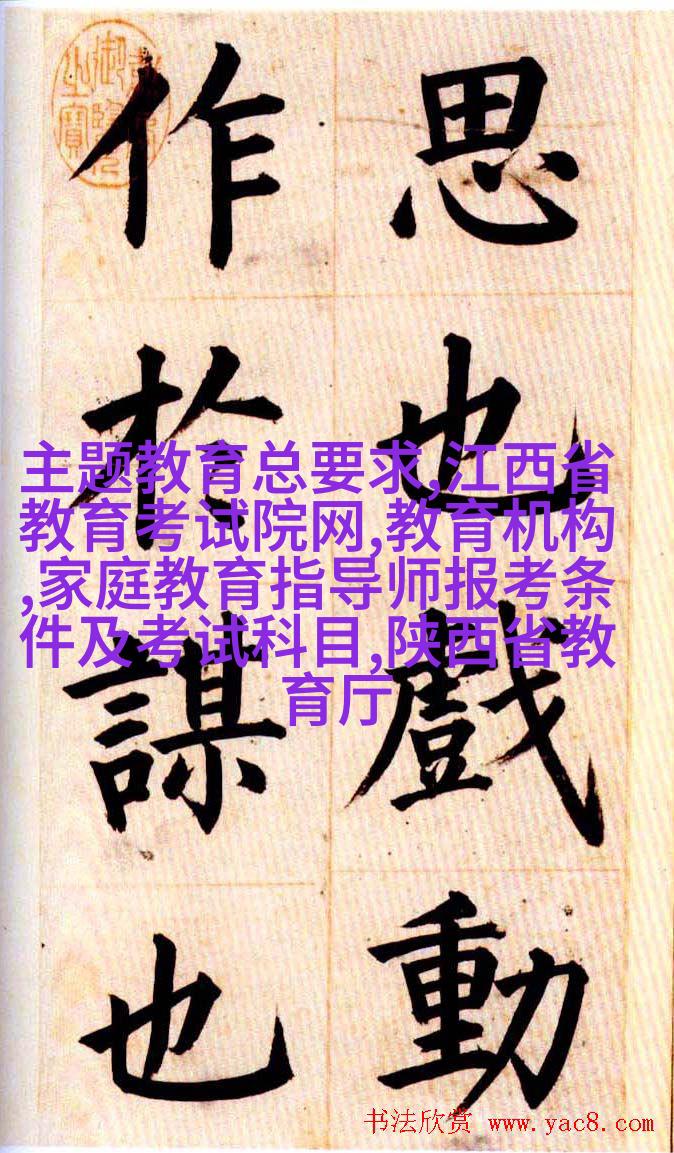 思也戲動
作於謀也
主题教育总要求,江西省
教育考试院网,教育机构
,家庭教育指导师报考条
件及考试科目,陕西省教
育厅
书法欣赏 www.yac8.com